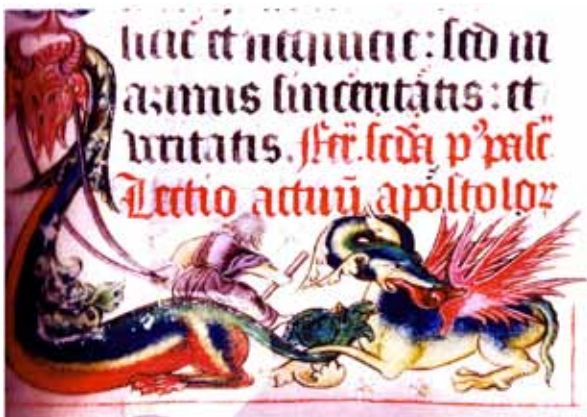 licie et nequicie : sed in
azimis sinceritatis : et
veritatis. Fer. scda p' pasc
Lectio actuū apostoloꝝ